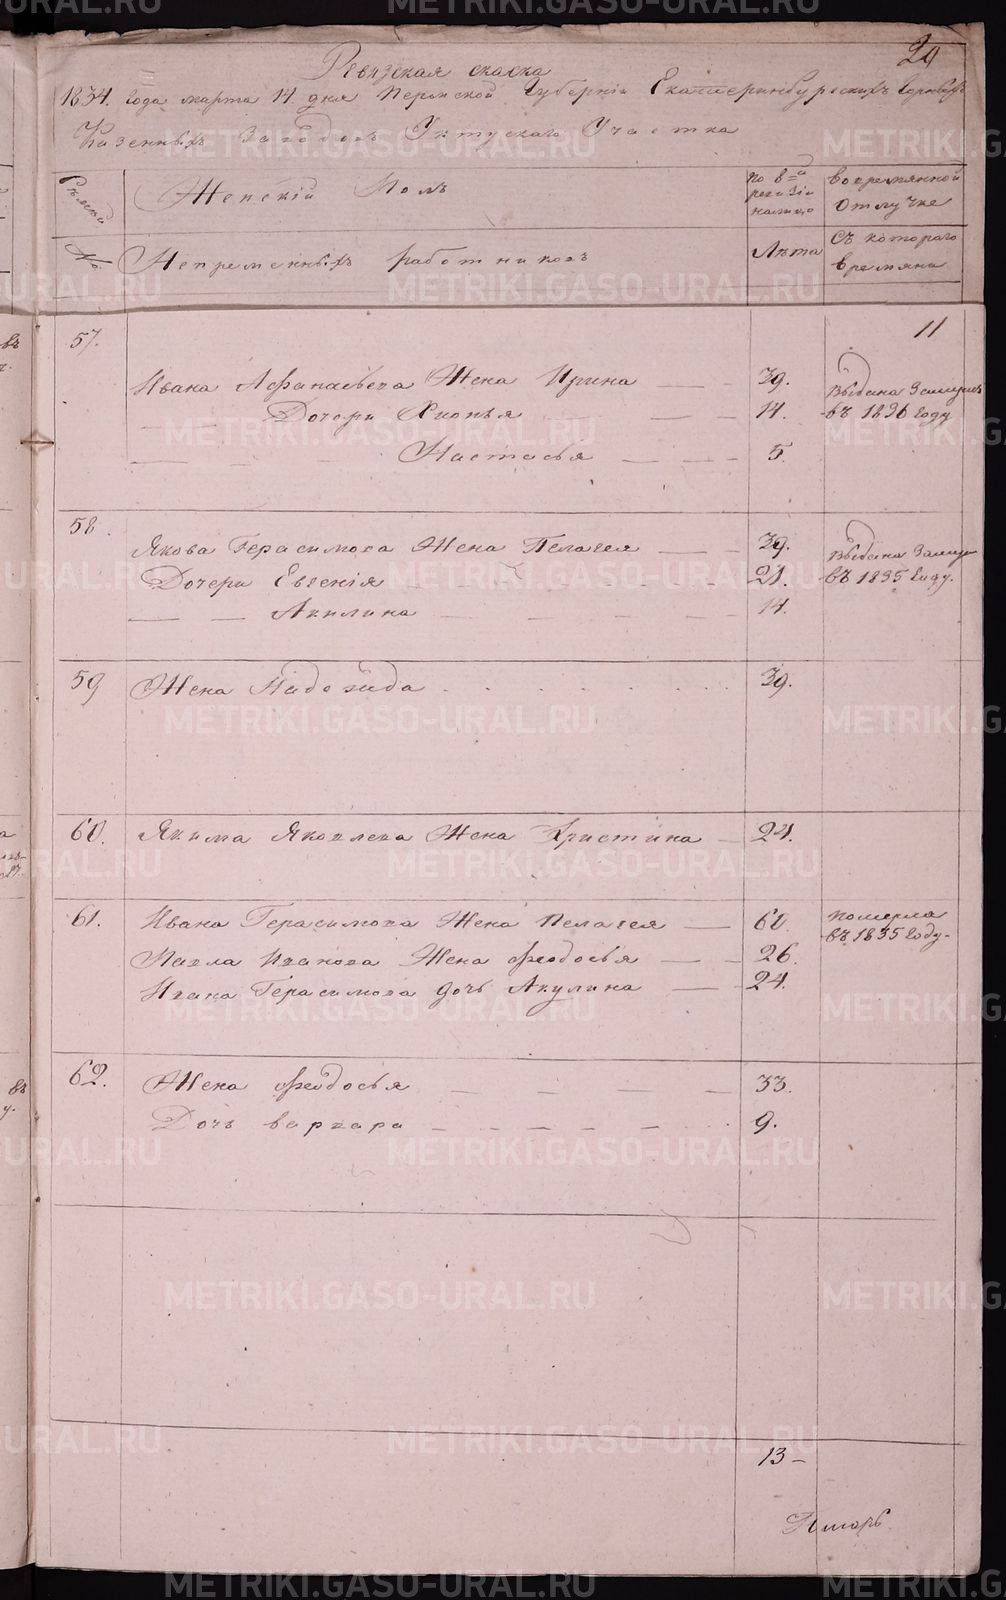 29
Ревизская скаска
1834. года марта 14 дня Пермской Губернiи Екатеринбургскихъ Горныхъ
Казенныхъ Заводовъ Уктускаго Участка
Женскiй Полъ
по 8й ревизiи налицо
вовремянной отлучке
№
Непременныхъ работниковъ
Лѣта
Съ котораго времяни
11
57.
Ивана Афанасьева Жена Ирина 39.
Дочери Хионья 14. Выдана Замужъ въ 1836 году
Настасья 5.
58.
Якова Герасимова Жена Пелагея 39.
Дочери Евгенiя 21. Выдана Замуж въ 1835 году.
Акилина 14.
59 Жена Надежда 39.
60. Якима Яковлева Жена Христина 24.
61. Ивана Герасимова Жена Пелагея 60. померла въ 1835 году.
Павла Иванова Жена Феодосья 26.
Ивана Герасимова дочь Акулина 24.
62. Жена Феодосья 33.
Дочь варвара 9.
13
METRIKI.GASO-URAL.RU